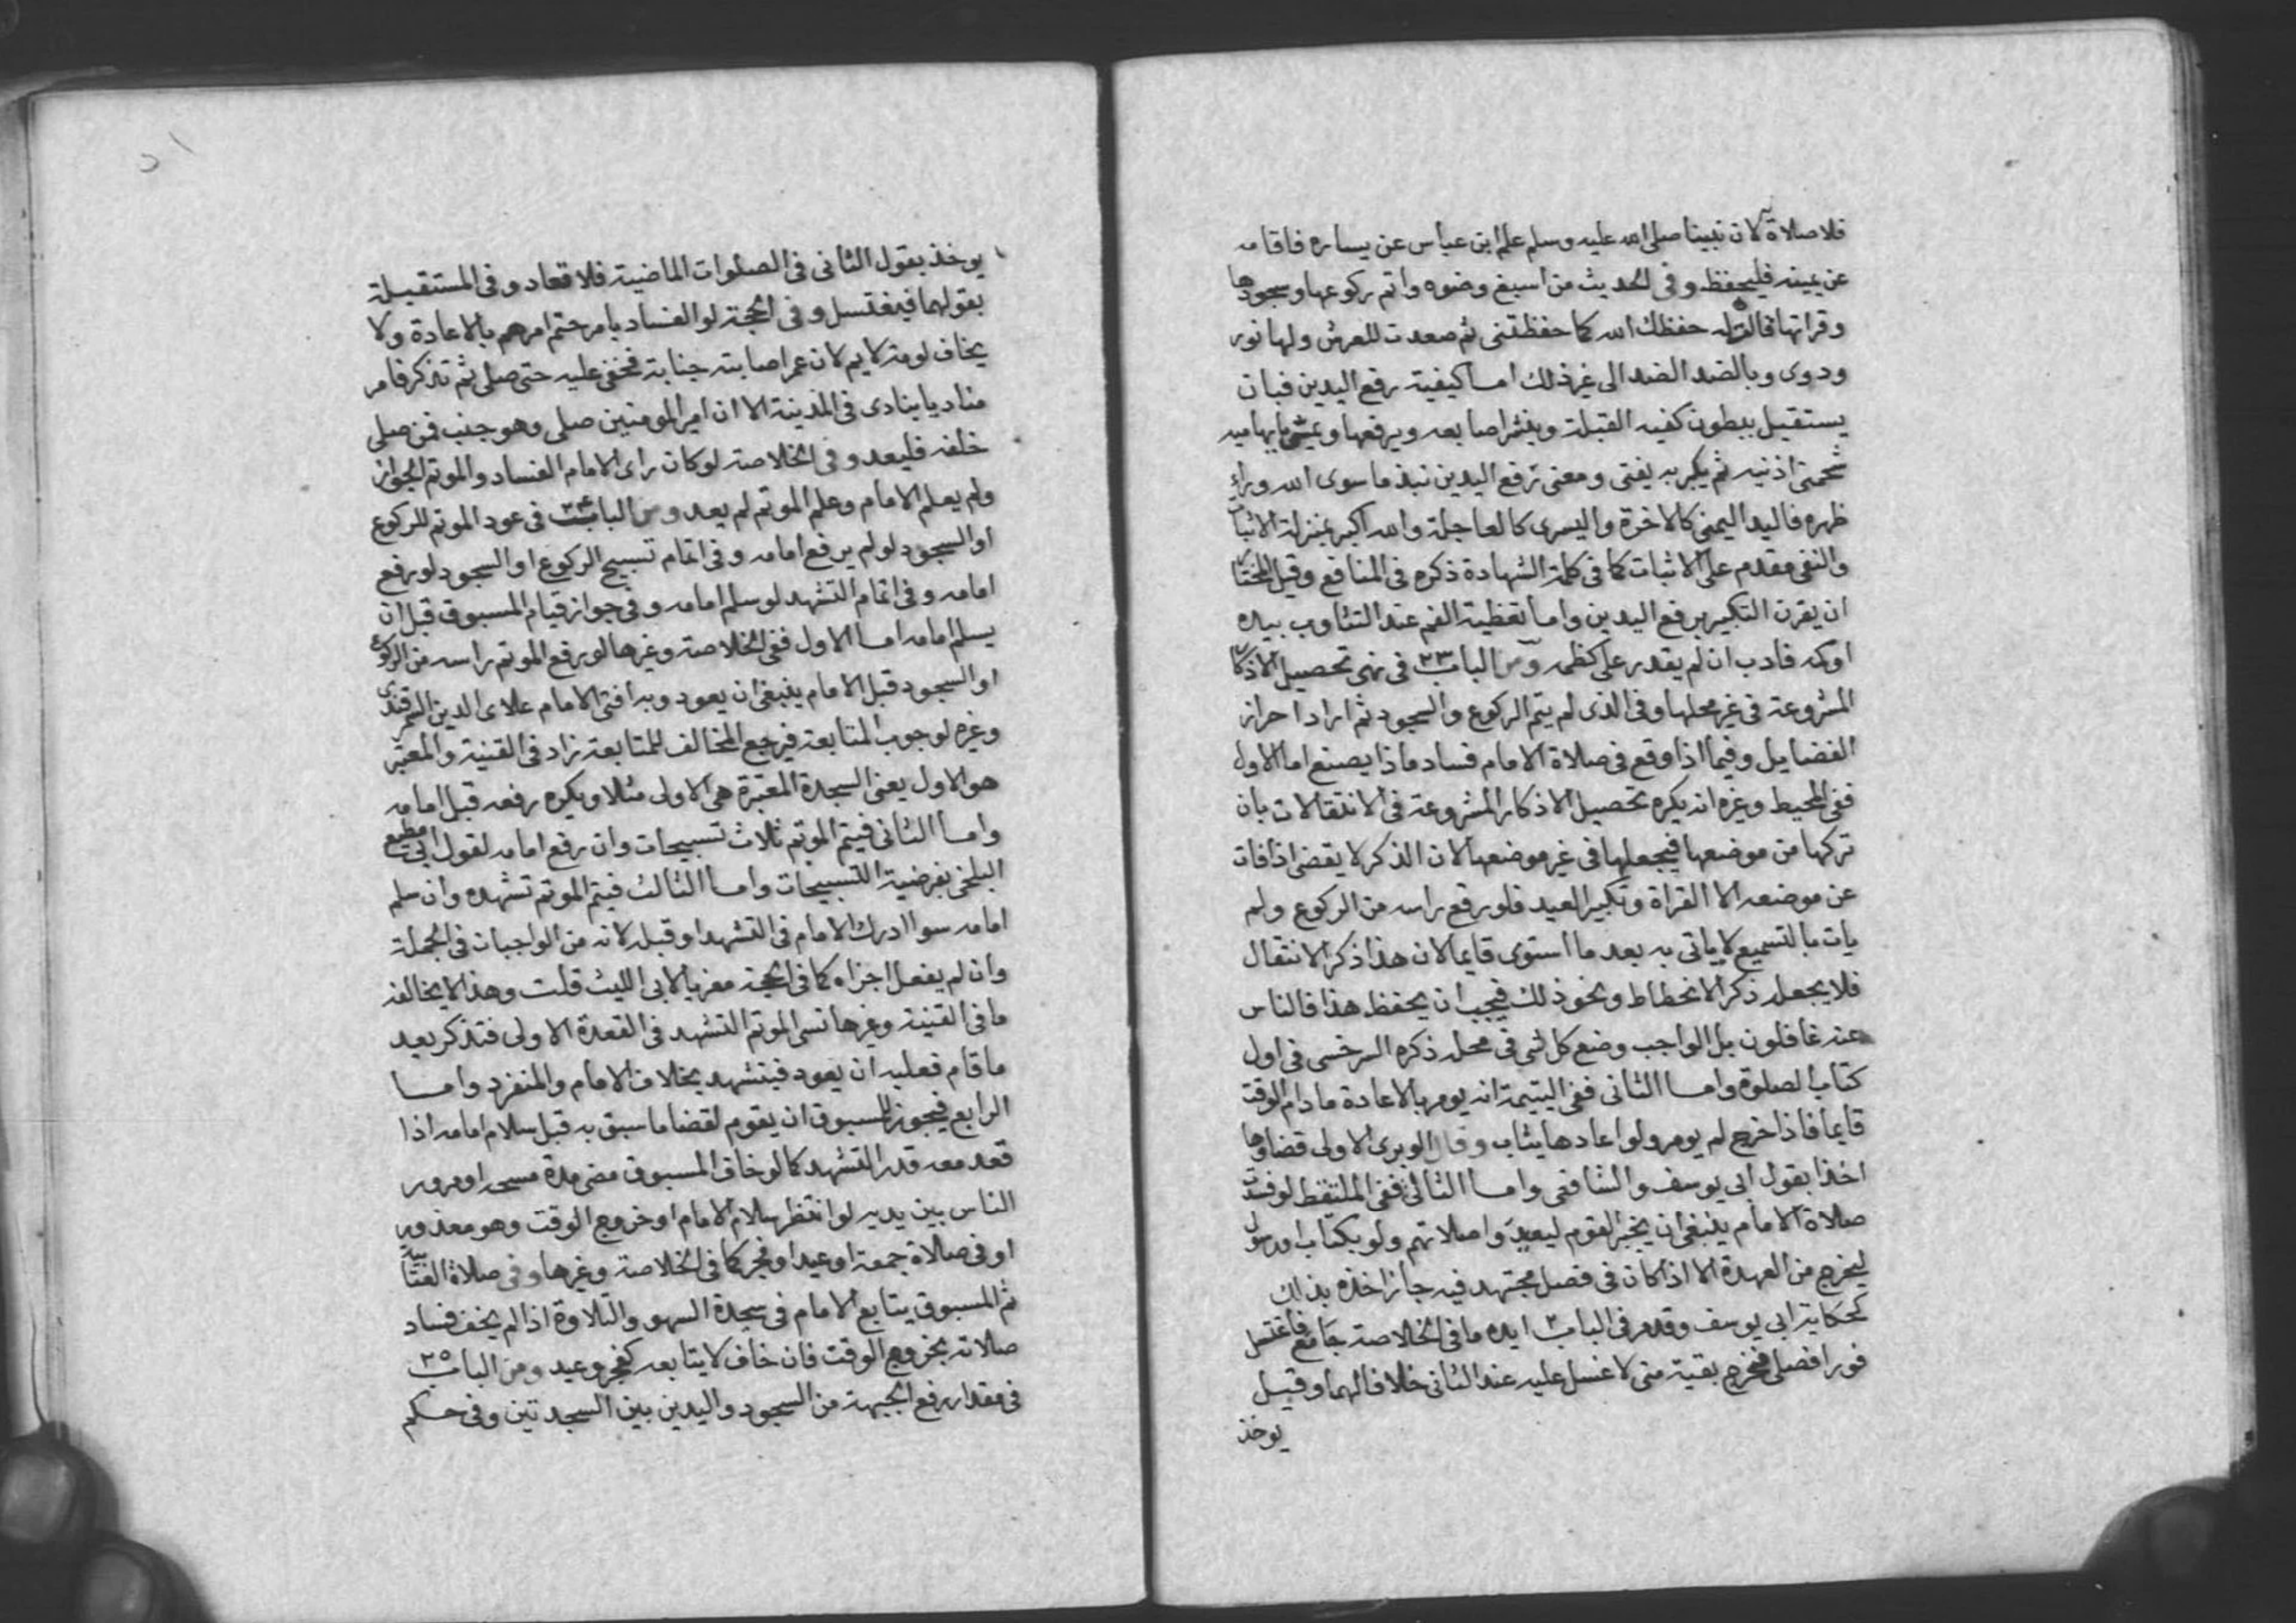 فلا صلاة له لان نبينا صلى الله عليه وسلم علم ابن عباس عن يساره فاقامه
عن يمينه فليحفظ وفى الحديث من اسبغ وضوه واتم ركوعها وسجودها
وقراتها قالت له حفظك الله كما حفظتنى ثم صعدت للعرش ولها نور
ودوى وبالضد الضد الى غير ذلك امــا كيفية رفع اليدين فبان
يستقبل ببطون كفيه القبلة وينشر اصابعه ويرفعها ويمس بابهاميه
شحمتى اذنيه ثم يكبر به يفتى ومعنى رفع اليدين نبذ ما سوى الله وراء
ظهره فاليد اليمنى كالاخرة واليسرى كالعاجلة والله اكبر بمنزلة الاثبات
والنفى مقدم على الاثبات كما فى كلمة الشهادة ذكره فى المنافع وقيل المختار
ان يقرن التكبير برفع اليدين وامــا تغطية الفم عند التثاوب بيده
اوكمه فادب ان لم يقدر على كظمه ومن الباب ٢٣ فى نهى تحصيل الاذكار
المشروعة فى غير محلها وفى الذى لم يتم الركوع والسجود ثم اراد احراز
الفضايل وفيما اذا وقع فى صلاة الامام فساد ماذا يصنع اما الاول
ففى المحيط وغيره انه يكره تحصيل الاذكار المشروعة فى الانتقالات بان
تركها من موضعها فيجعلها فى غير موضعها لان الذكر لا يقضى اذا فات
عن موضعه الا القراة وتكبير العيد فلو رفع راسه من الركوع ولم
يات بالتسميع لا ياتى به بعد ما استوى قايما لان هذا ذكر الانتقال
فلا يجعل ذكر الانحطاط ونحو ذلك فيجب ان يحفظ هذا فالناس
عنه غافلون بل الواجب وضع كل شى فى محله ذكره السرخسى فى اول
كتاب الصلوة وامــا الثانى ففى اليتيمة انه يومر بالاعادة ما دام الوقت
قايما فاذا خرج لم يومر ولو اعادها يثاب وقال الوبرى الاولى قضاوها
اخذا بقول ابى يوسف والشافعى وامــا الثالث ففى الملتقط لو فسدت
صلاة الامام ينبغى ان يخبر القوم ليعيدوا صلاتهم ولو بكتاب او رسول
ليخرج من العهدة الا اذا كان فى فصل مجتهد فيه جاز اخذه بذلك
كحكاية ابى يوسف وقدم فى الباب ٢ ايده ما فى الخلاصة جامع فاغتسل
فورا فصلى فخرج بقية منى لا غسل عليه عند الثانى خلافا لهما وقيــل
يوخذ
يوخذ بقول الثانى فى الصلوات الماضية فلا تعاد وفى المستقبـلة
بقولهما فيغتسل وفى الحجة لو الفساد بامر حتم امرهم بالاعادة ولا
يخاف لومة لايم لان عمر اصابته جنابة فخفى عليه حتى صلى ثم تذكر فامر
مناديا ينادى فى المدينة الا ان امير المومنين صلى وهو جنب فمن صلى
خلفه فليعد وفى الخلاصة لو كان راى الامام الفساد والموتم الجواز
ولم يعلم الامام وعلم الموتم لم يعد ومن الباب ٢٤ فى عود الموتم للركوع
او السجود لو لم يرفع امامه وفى اتمام تسبيح الركوع او السجود لو رفع
امامه وفى اتمام التشهد لو سلم امامه وفى جواز قيام المسبوق قبل ان
يسلم امامه امــا الاول ففى الخلاصة وغيرها لو رفع الموتم راسه من الركوع
او السجود قبل الامام ينبغى ان يعود وبه افتى الامام علاى الدين السمرقندى
وغيره لوجوب المتابعة فيرجع المخالف للمتابعة زاد فى القنية والمعتبر
هو الاول يعنى السجدة المعتبرة هى الاولى مثلا ويكره رفعه قبل امامه
وامــا الثانى فيتم الموتم ثلاث تسبيحات وان رفع امامه لقول ابى مطيع
البلخى بفرضية التسبيحات وامــا الثالث فيتم الموتم تشهده وان سلم
امامه سوا ادرك الامام فى التشهد او قبله لانه من الواجبات فى الجملة
وان لم يفعل اجزاه كما فى الحجة معزيا لابى الليث قلت وهذا لا يخالفه
ما فى القنية وغيرها نسى الموتم التشهد فى القعدة الاولى فتذكر بعد
ما قام فعليه ان يعود فيتشهد بخلاف الامام والمنفرد وامــا
الرابع فيجوز للمسبوق ان يقوم لقضا ما سبق به قبل سلام امامه اذا
قعد معه قدر التشهد كما لو خاف المسبوق مضى مدة مسحه او مرور
الناس بين يديه لو انتظر سلام الامام او خروج الوقت وهو معذور
او فى صلاة جمعة او عيد او فجر كما فى الخلاصة وغيرها وفى صلاة
ثم المسبوق يتابع الامام فى سجدة السهو والتلاوة اذا لم يخف فساد
صلاته بخروج الوقت فان خاف لا يتابعه كفجر وعيد ومن الباب ٢٥
فى مقدار رفع الجبهة من السجود واليدين بين السجدتين وفى حـكم